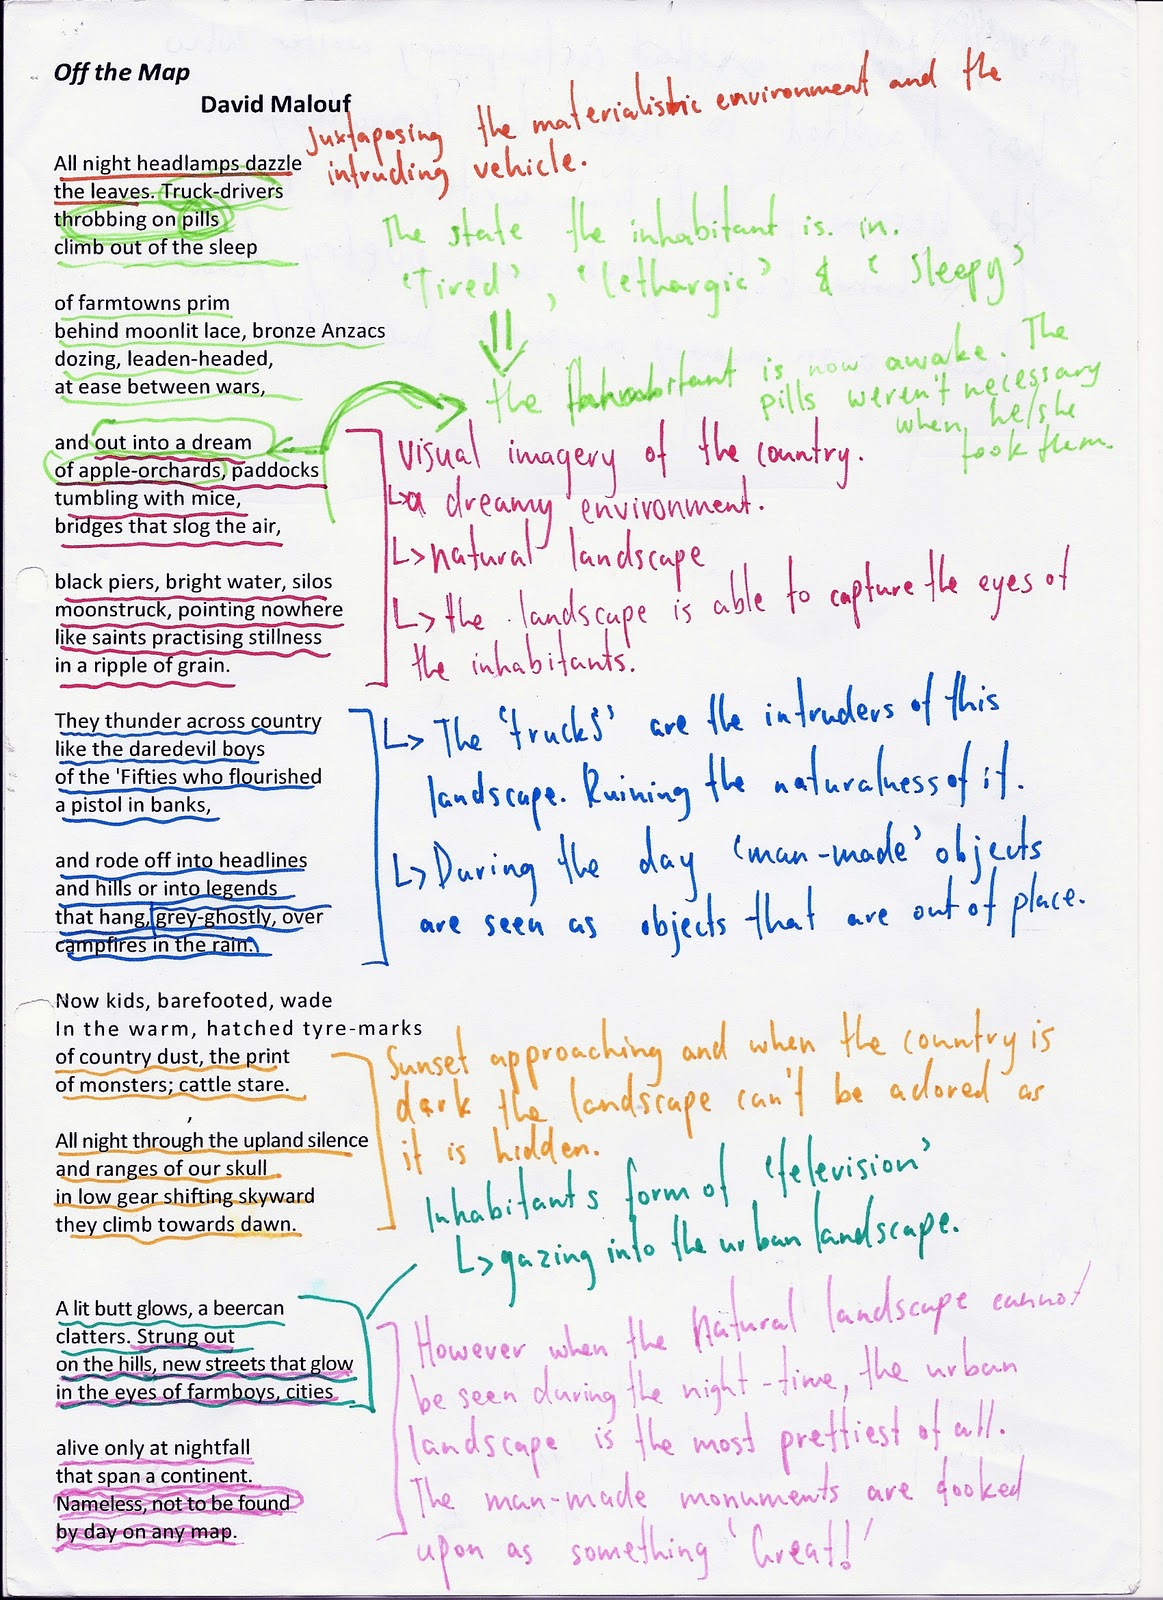 Off the Map
David Malouf
Juxtaposing the materialistic environment and the
intruding vehicle.
All night headlamps dazzle
the leaves. Truck-drivers
throbbing on pills
climb out of the sleep
The state the inhabitant is in.
'Tired', 'lethargic' & 'sleepy'
of farmtowns prim
behind moonlit lace, bronze Anzacs
dozing, leaden-headed,
at ease between wars,
the inhabitant is now awake. The
pills weren't necessary
when he/she
took them.
and out into a dream
of apple-orchards, paddocks
tumbling with mice,
bridges that slog the air,
black piers, bright water, silos
moonstruck, pointing nowhere
like saints practising stillness
in a ripple of grain.
Visual imagery of the country.
↳a dreamy environment.
↳natural landscape
↳the landscape is able to capture the eyes of
the inhabitants.
They thunder across country
like the daredevil boys
of the 'Fifties who flourished
a pistol in banks,
and rode off into headlines
and hills or into legends
that hang, grey-ghostly, over
campfires in the rain.
↳The 'trucks' are the intruders of this
landscape. Ruining the naturalness of it.
↳During the day 'man-made' objects
are seen as objects that are out of place.
Now kids, barefooted, wade
In the warm, hatched tyre-marks
of country dust, the print
of monsters; cattle stare.
All night through the upland silence
and ranges of our skull
in low gear shifting skyward
they climb towards dawn.
Sunset approaching and when the country is
dark the landscape can't be adored as
it is hidden.
Inhabitants form of 'television'
↳gazing into the urban landscape.
A lit butt glows, a beercan
clatters. Strung out
on the hills, new streets that glow
in the eyes of farmboys, cities
alive only at nightfall
that span a continent.
Nameless, not to be found
by day on any map.
However when the natural landscape cannot
be seen during the night-time, the urban
landscape is the most prettiest of all.
The man-made monuments are looked
upon as something 'Great!'